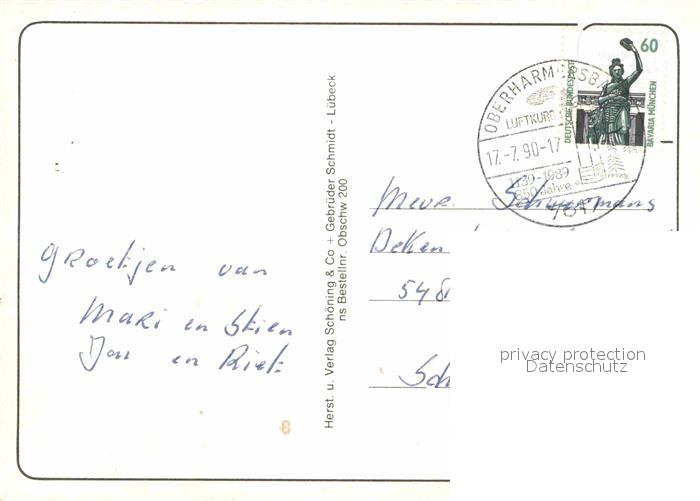 60
DEUTSCHE BUNDESPOST
BAVARIA MÜNCHEN
OBERHARM
LUFTKUR
17.-7.90-17
1139-1989
850 Jahre
Herst. u. Verlag Schöning & Co + Gebrüder Schmidt - Lübeck
ns Bestellnr. Obschw 200
Groetjen van
Mari en Stien
Jan en Riet
Mevr. Schuurmans
Deken
548
Sch
8
privacy protection
Datenschutz